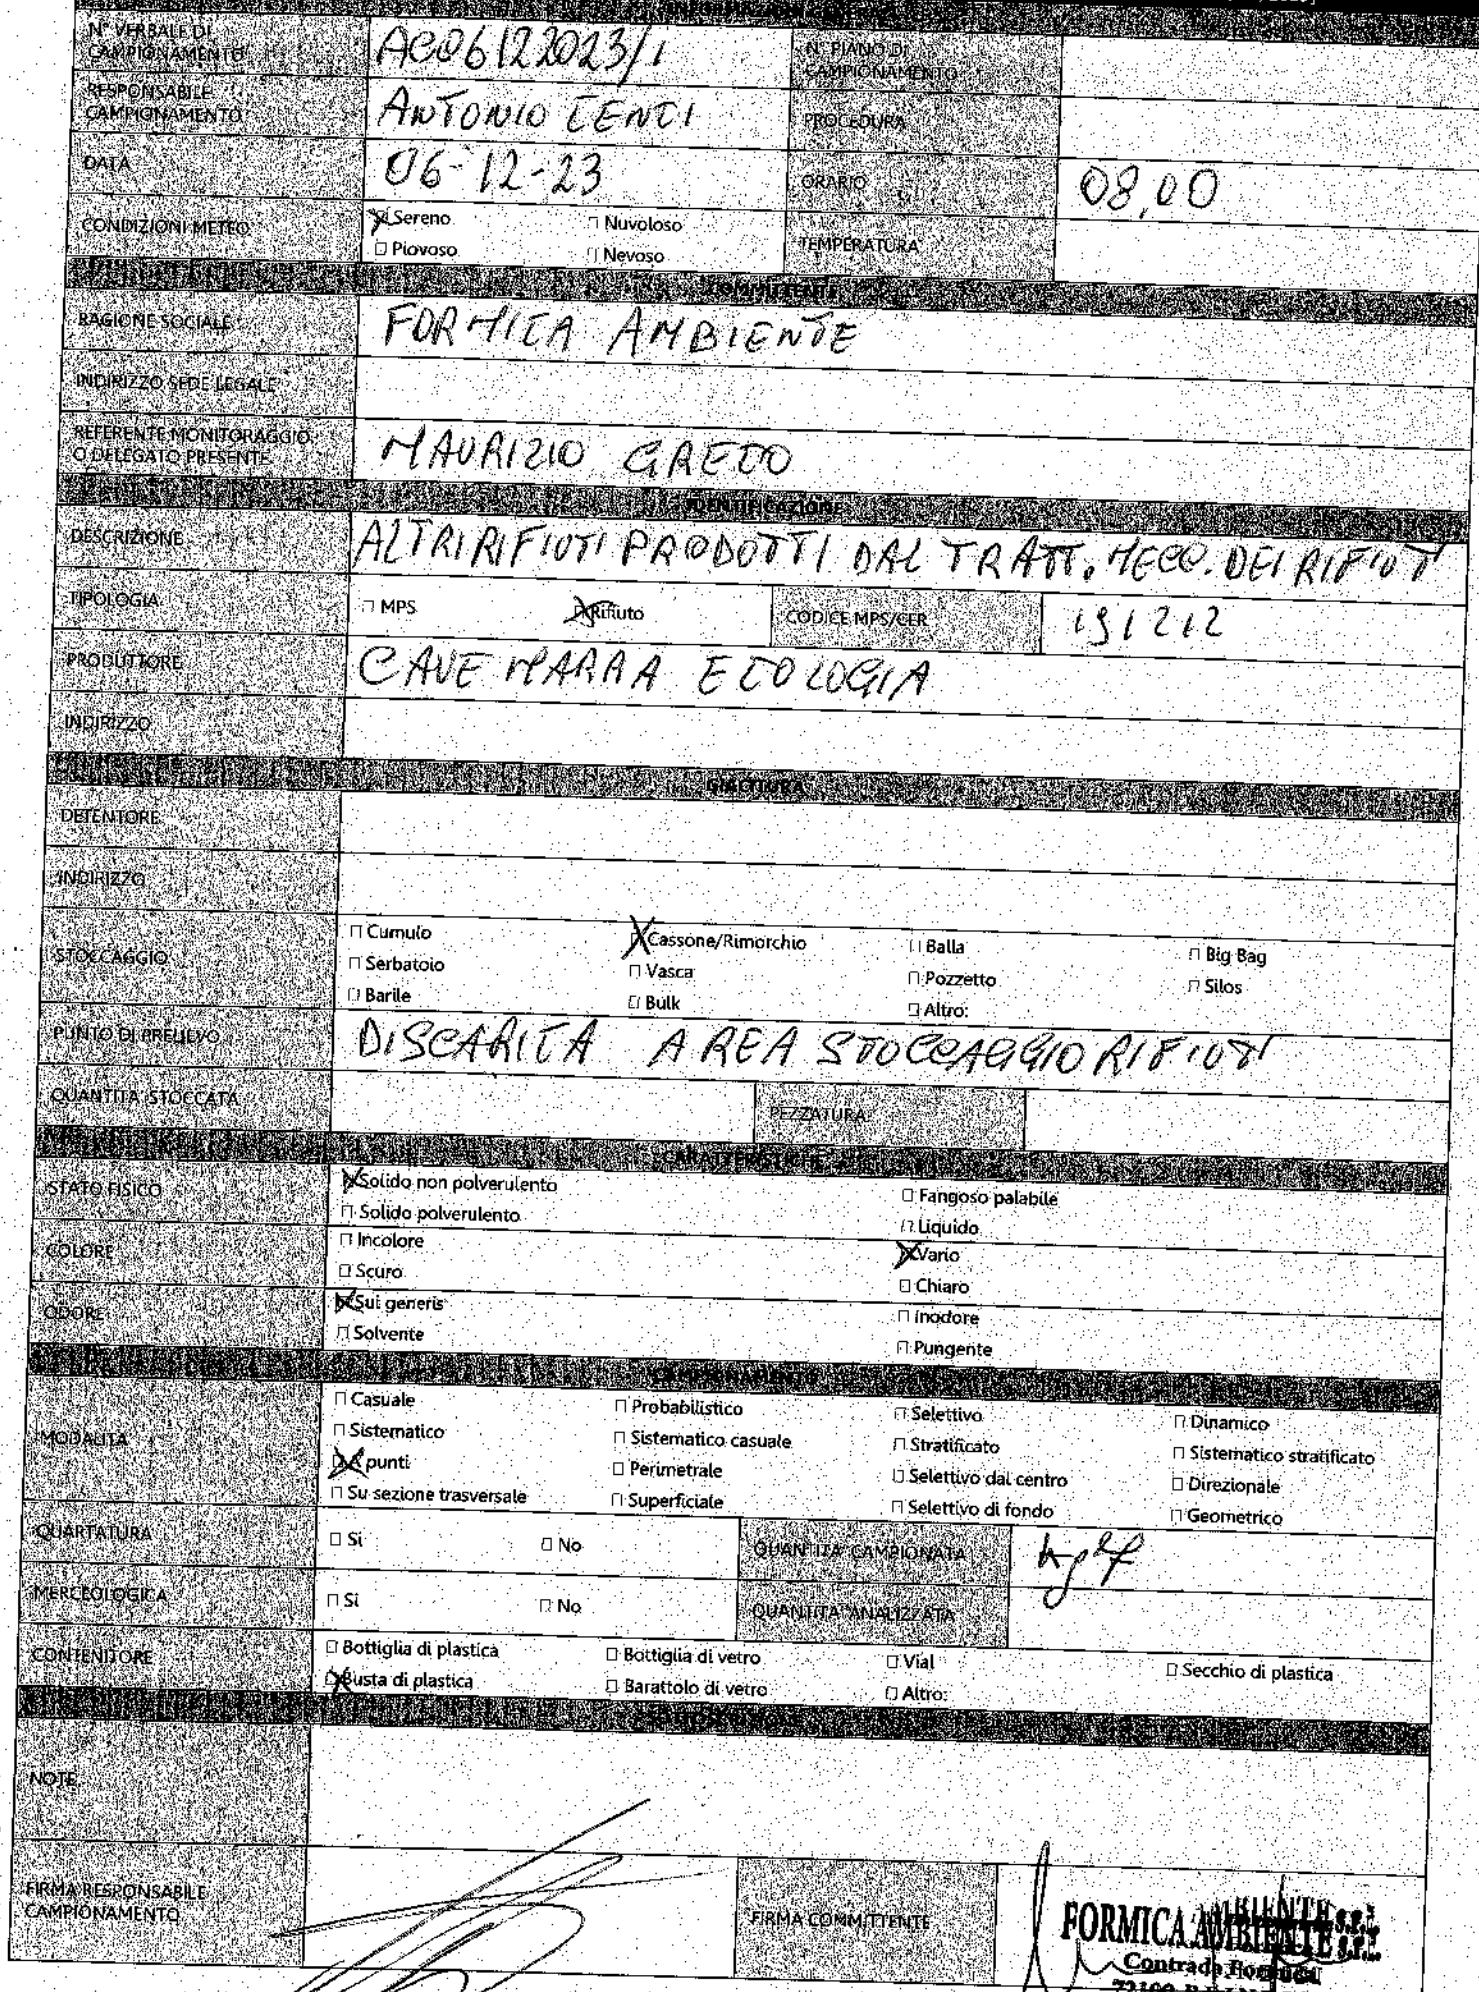 INFORMAZIONI GENERALI
N° VERBALE DI CAMPIONAMENTO AC06122023/1 N° PIANO DI CAMPIONAMENTO
RESPONSABILE CAMPIONAMENTO ANTONIO CENCI PROCEDURA
DATA 06-12-23 ORARIO 08,00
CONDIZIONI METEO Sereno Nuvoloso TEMPERATURA
Piovoso Nevoso
COMMITTENTE
RAGIONE SOCIALE FORMICA AMBIENTE
INDIRIZZO SEDE LEGALE
REFERENTE MONITORAGGIO O DELEGATO PRESENTE MAURIZIO GRECO
IDENTIFICAZIONE
DESCRIZIONE ALTRI RIFIUTI PRODOTTI DAL TRATT. MECC. DEI RIFIUTI
TIPOLOGIA MPS Rifiuto CODICE MPS/CER 191212
PRODUTTORE CAVE MARRA ECOLOGIA
INDIRIZZO
GIACITURA
DETENTORE
INDIRIZZO
STOCCAGGIO Cumulo Cassone/Rimorchio Balla Big Bag
Serbatoio Vasca Pozzetto Silos
Barile Bulk Altro:
PUNTO DI PRELIEVO DISCARICA AREA STOCCAGGIO RIFIUTI
QUANTITA' STOCCATA PEZZATURA
CARATTERISTICHE
STATO FISICO Solido non polverulento Fangoso palabile
Solido polverulento Liquido
COLORE Incolore Vario
Scuro Chiaro
ODORE Sui generis Inodore
Solvente Pungente
CAMPIONAMENTO
MODALITA' Casuale Probabilistico Selettivo Dinamico
Sistematico Sistematico casuale Stratificato Sistematico stratificato
A punti Perimetrale Selettivo dal centro Direzionale
Su sezione trasversale Superficiale Selettivo di fondo Geometrico
QUARTATURA Si No QUANTITA' CAMPIONATA kg
MERCEOLOGICA Si No QUANTITA' ANALIZZATA
CONTENITORE Bottiglia di plastica Bottiglia di vetro Vial Secchio di plastica
Busta di plastica Barattolo di vetro Altro:
NOTE
FIRMA RESPONSABILE CAMPIONAMENTO FIRMA COMMITTENTE
FORMICA AMBIENTE s.r.l.
Contrada Formica